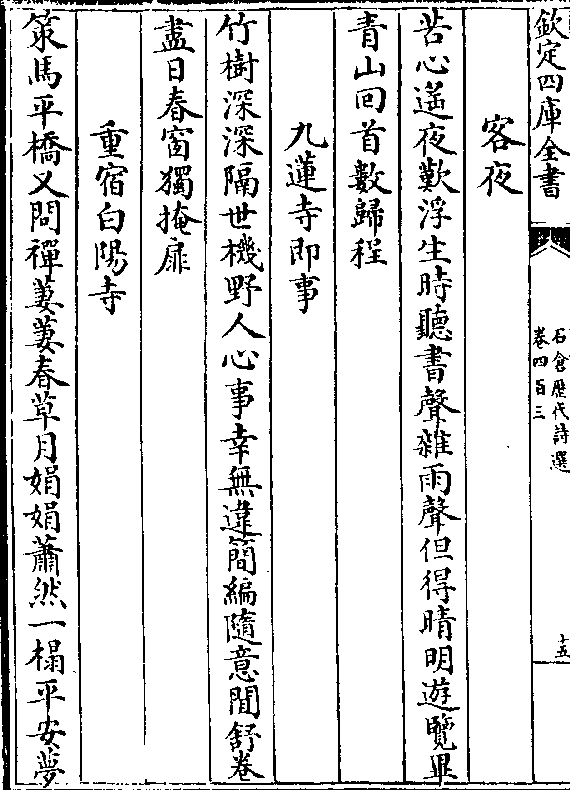 欽定四庫全書
石倉歷代詩選
卷四百三
十五
客夜
苦心遥夜歎浮生時聽書聲雜雨聲但得晴明遊覽畢
青山回首數歸程
九蓮寺即事
竹樹深深隔世機野人心事幸無違簡編隨意閒舒卷
盡日春窗獨掩扉
重宿白陽寺
策馬平橋又問禪萋萋春草月娟娟蕭然一榻平安夢